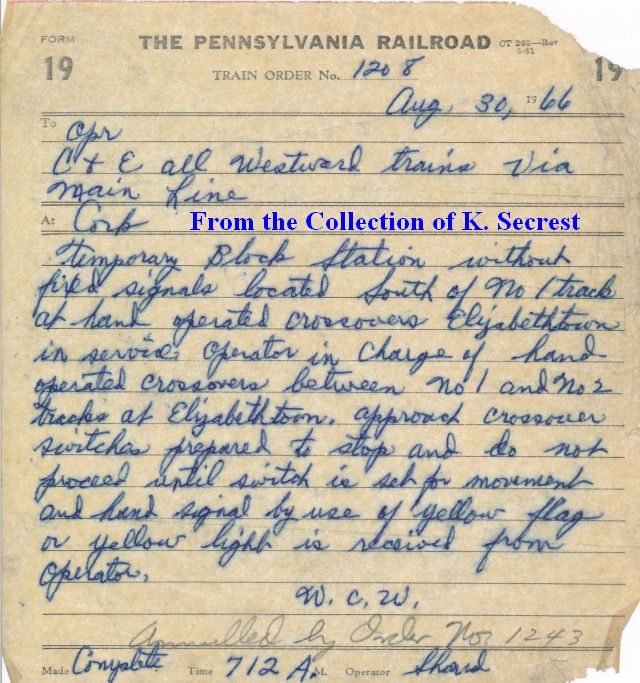 FORM 19 THE PENNSYLVANIA RAILROAD CT 262—Rev 5-61 19
TRAIN ORDER No. 1208
Aug. 30, 1966
To Opr
C & E all Westward trains Via
Main Line
At Cork From the Collection of K. Secrest
Temporary Block Station without
fixed signals located South of No 1 track
at hand operated crossovers Elizabethtown
in service. Operator in Charge of hand
operated crossovers between No 1 and No 2
tracks at Elizabethtown. approach crossover
switches prepared to stop and do not
proceed until switch is set for movement
and hand signal by use of yellow flag
or yellow light is received from
Operator.
W. C. W.
Annulled by Order No. 1243
Made Complete Time 712 A. M. Operator